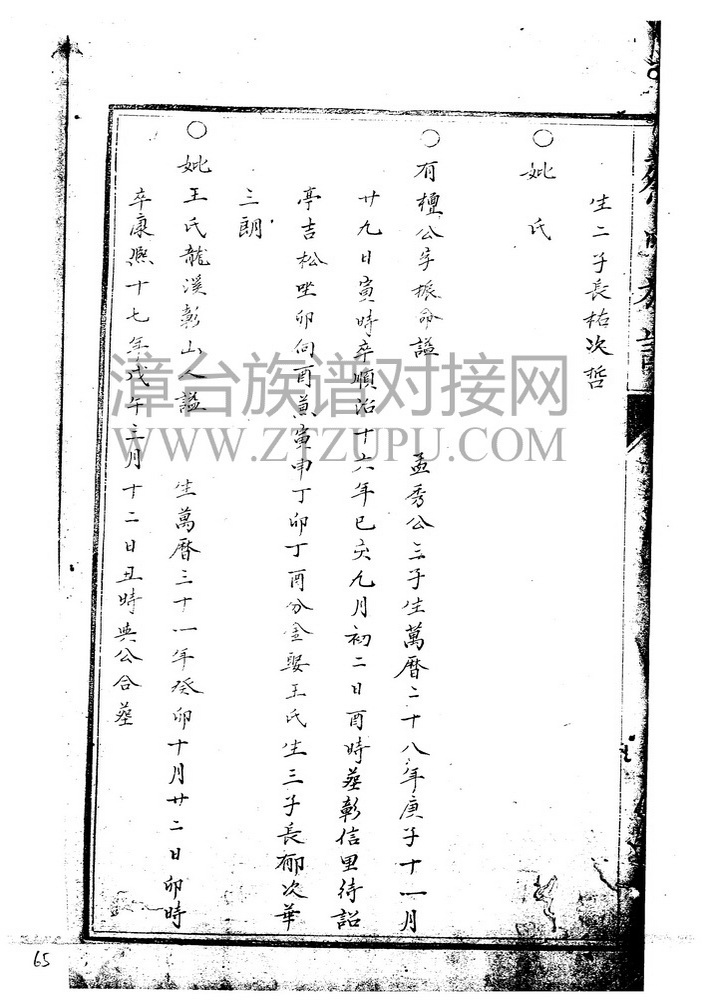 生二子長祐次哲
〇妣 氏
〇有檀公字振命諡 孟秀公三子生萬曆二十八年庚子十一月
廿九日寅時卒順治十六年己亥九月初二日酉時葬彰信里待詔
亭吉松坐卯向酉兼寅申丁卯丁酉分金娶王氏生三子長郁次華
三朗
〇妣王氏龍溪彰山人諡 生萬曆三十一年癸卯十月廿二日卯時
卒康熙十七年戊午三月十二日丑時與公合葬
漳台族谱对接网
WWW.ZTZUPU.COM
65